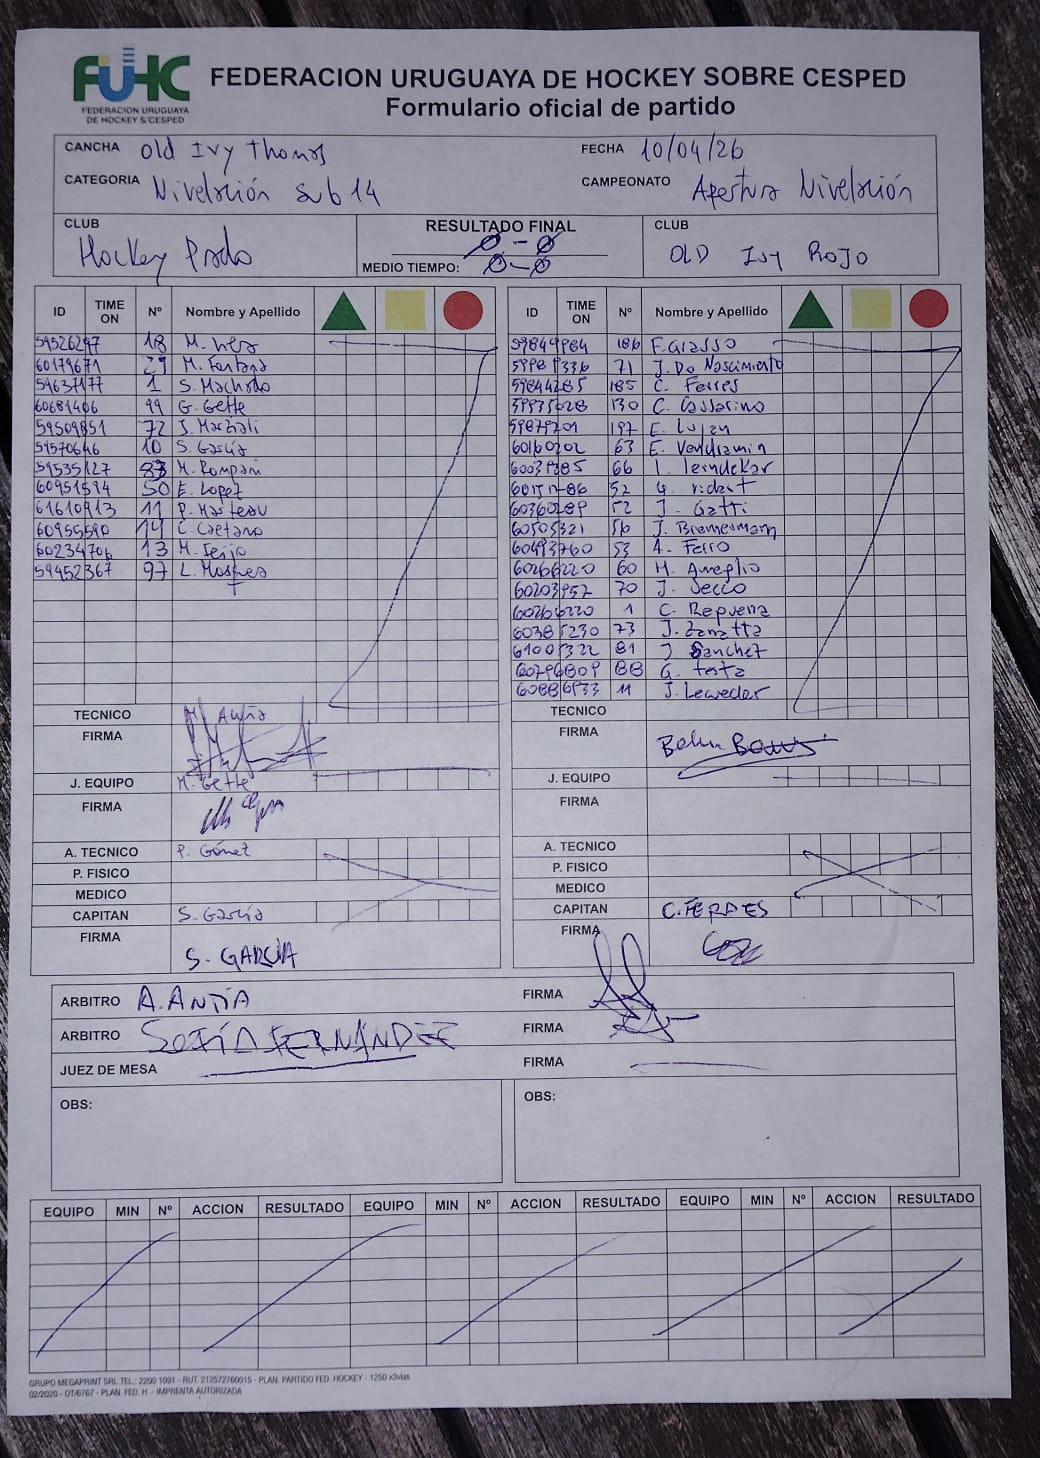 FUHC
FEDERACION URUGUAYA
DE HOCKEY S/CESPED
FEDERACION URUGUAYA DE HOCKEY SOBRE CESPED
Formulario oficial de partido
CANCHA Old Ivy Thomas FECHA 10/04/26
CATEGORIA Nivelación sub 14 CAMPEONATO Apertura Nivelación
CLUB Hockey Prado
RESULTADO FINAL 0-0
MEDIO TIEMPO: 0-0
CLUB OLD Ivy ROJO
ID TIME ON Nº Nombre y Apellido
59526297 18 M.
60179671 29 M. Fontana
54637177 1 S. Machado
60681406 99 G. Gette
59509851 72 J.
59570646 10 S. García
59535127 M. Rompani
60951594 50 E. Lopez
61610913 11 P.
60955590 14 C. Caetano
60234706 13 M. Feijo
59452367 97 L.
TECNICO
FIRMA
J. EQUIPO M. Gette
FIRMA
A. TECNICO P. Gómez
P. FISICO
MEDICO
CAPITAN S. García
FIRMA S. GARCIA
ID TIME ON Nº Nombre y Apellido
59849984 186 F. Grasso
71 J. Do Nascimento
59844285 185 C. Ferres
59935028 130 C. Cassarino
197 E. Lujan
60160202 63 E. Vendramin
66 I.
52 G.
60360289 J. Gatti
60505321 56 J.
60493760 53 A. Ferro
60266220 60 M. Ameglio
60203952 70 J. Secco
60266220 1 C. Requena
60385230 73 J. Zanatta
61007322 81 J Sanchez
60796809 88 G. Testa
11 J.
TECNICO
FIRMA
J. EQUIPO
FIRMA
A. TECNICO
P. FISICO
MEDICO
CAPITAN C. FERRES
FIRMA
ARBITRO A. ANTÍA FIRMA
ARBITRO SOFÍA FERNÁNDEZ FIRMA
JUEZ DE MESA FIRMA
OBS: OBS:
EQUIPO MIN Nº ACCION RESULTADO EQUIPO MIN Nº ACCION RESULTADO EQUIPO MIN Nº ACCION RESULTADO
GRUPO MEGAPRINT SRL TEL.: 2200 1091 - RUT. 212572760015 - PLAN. PARTIDO FED. HOCKEY - 1250 x3vías
02/2020 - OT/6767 - PLAN. FED. H. - IMPRENTA AUTORIZADA